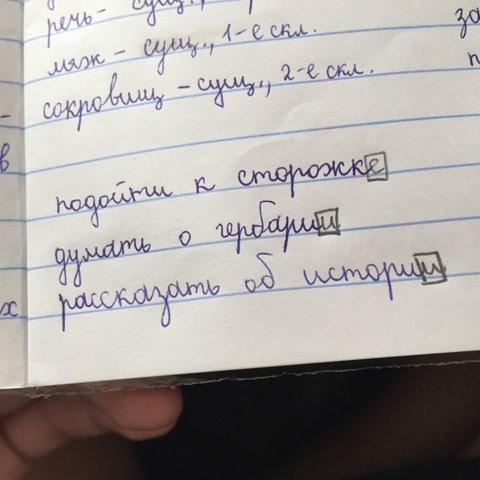 речь - сущ.,
мяж - сущ., 1-е скл.
сокровищ - сущ., 2-е скл.
подойти к сторожке
думать о гербарии
рассказать об истории